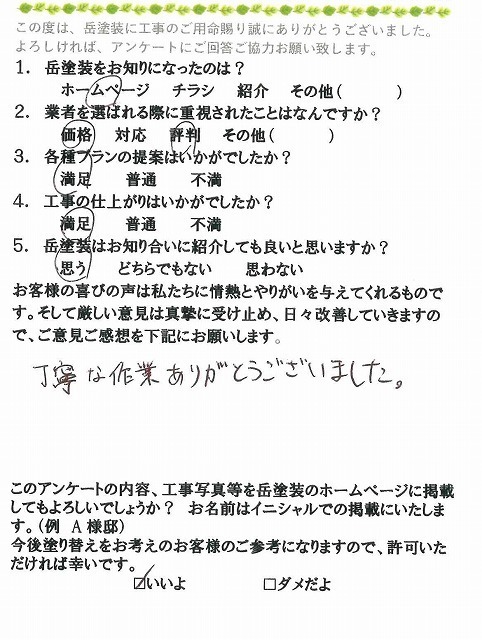 この度は、岳塗装に工事のご用命賜り誠にありがとうございました。
よろしければ、アンケートにご回答ご協力お願い致します。
1. 岳塗装をお知りになったのは？
ホームページ　チラシ　紹介　その他(　　　)
2. 業者を選ばれる際に重視されたことはなんですか？
価格　対応　評判　その他(　　　)
3. 各種プランの提案はいかがでしたか？
満足　普通　不満
4. 工事の仕上がりはいかがでしたか？
満足　普通　不満
5. 岳塗装はお知り合いに紹介しても良いと思いますか？
思う　どちらでもない　思わない
お客様の喜びの声は私たちに情熱とやりがいを与えてくれるもので
す。そして厳しい意見は真摯に受け止め、日々改善していきますの
で、ご意見ご感想を下記にお願いします。
丁寧な作業ありがとうございました。
このアンケートの内容、工事写真等を岳塗装のホームページに掲載
してもよろしいでしょうか？　お名前はイニシャルでの掲載にいたしま
す。(例　A 様邸)
今後塗り替えをお考えのお客様のご参考になりますので、許可いた
だければ幸いです。
☑いいよ　□ダメだよ